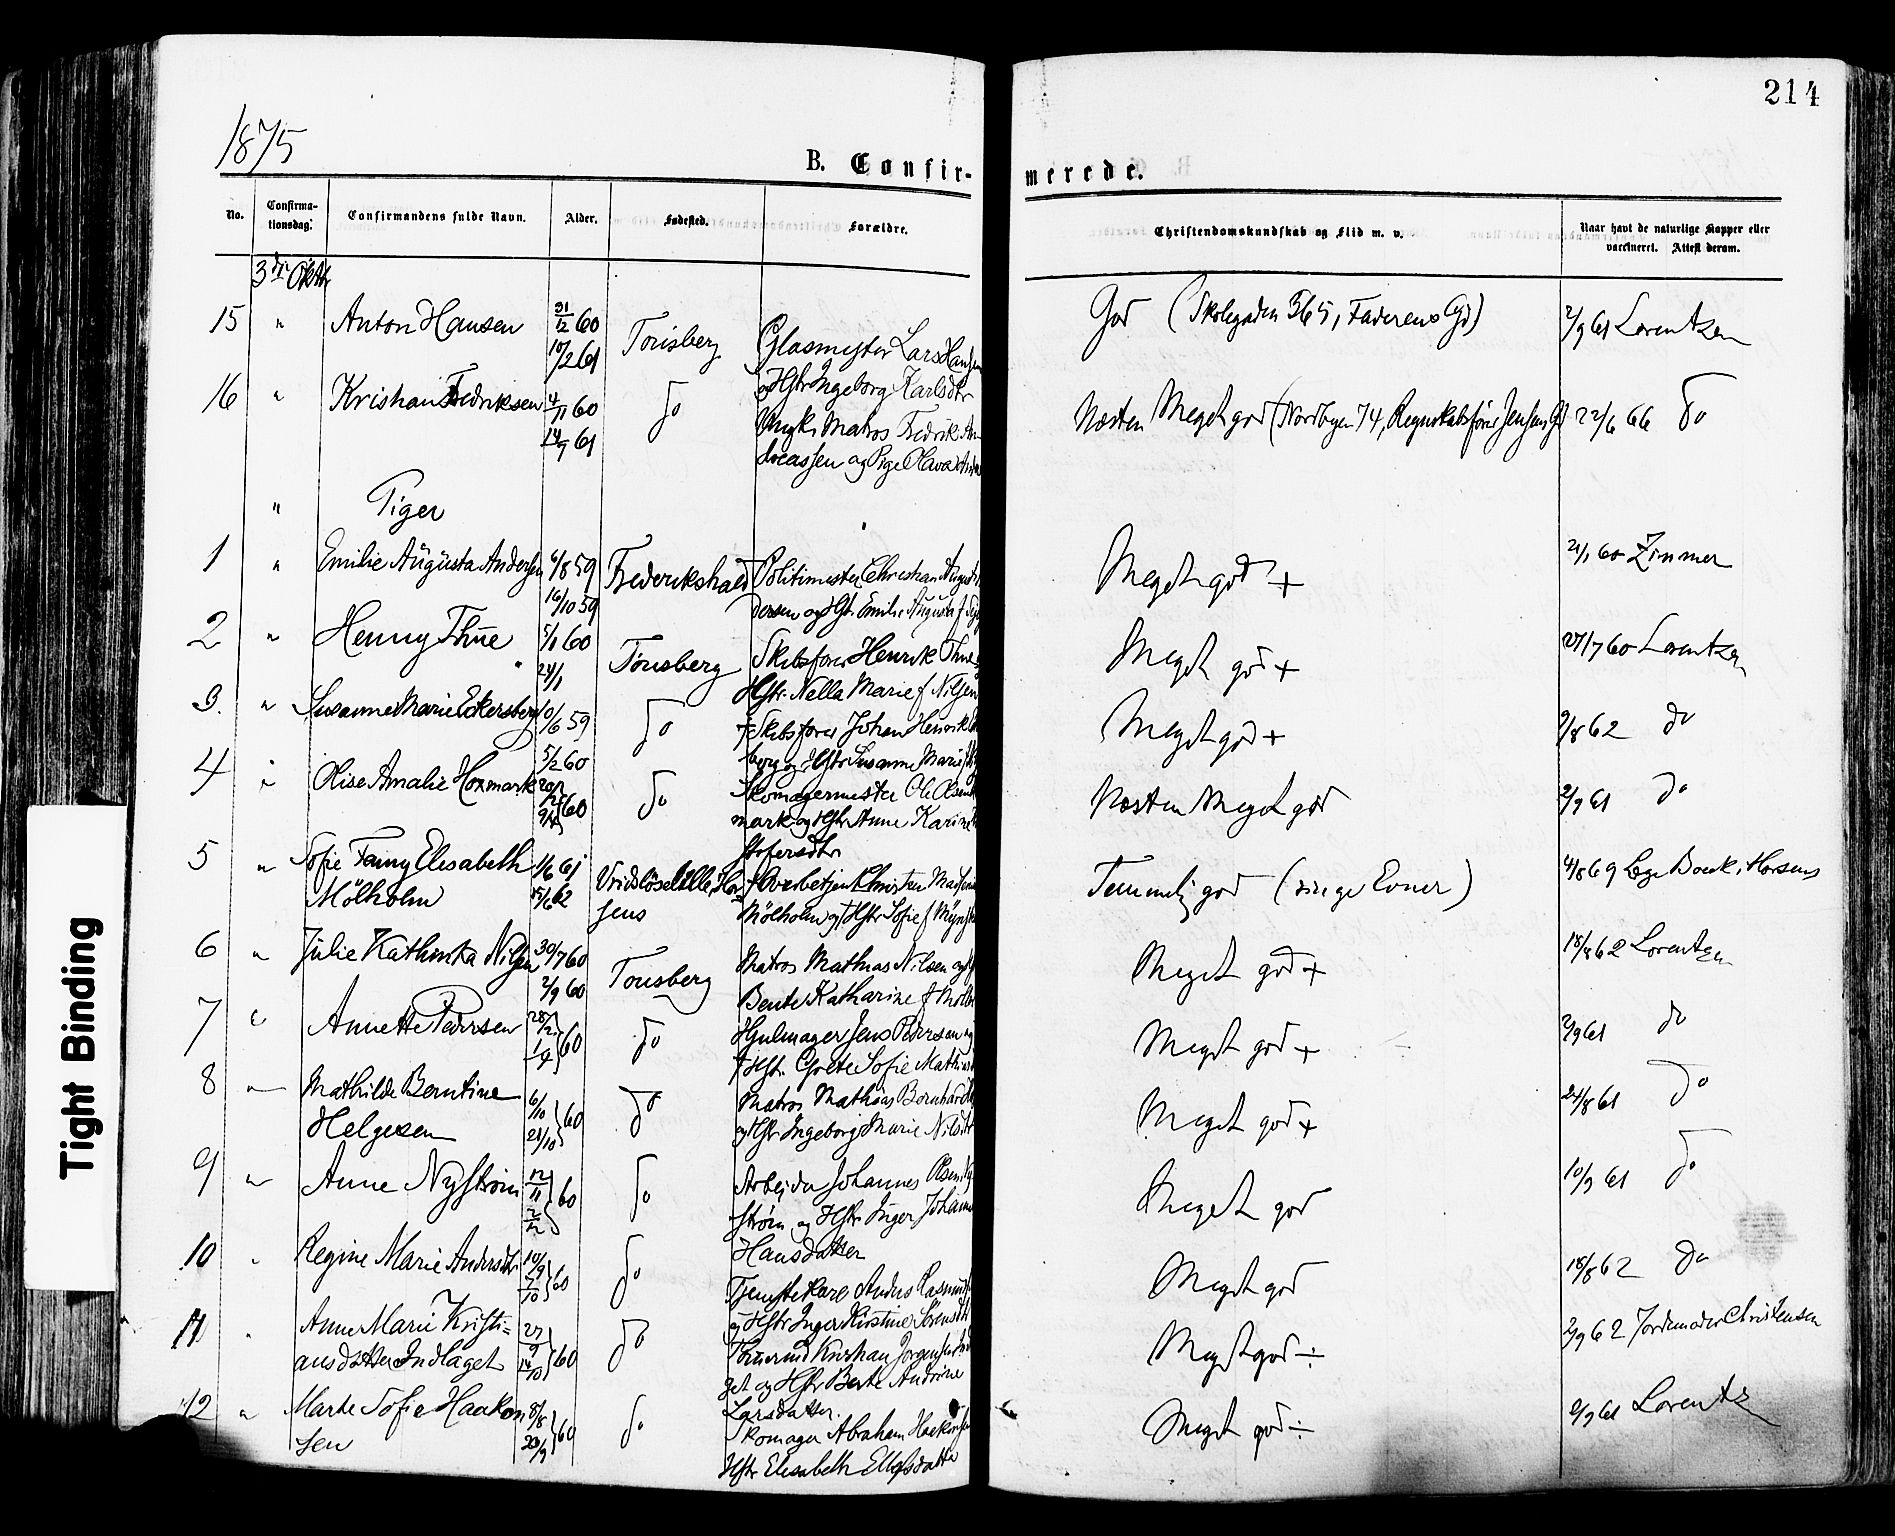 214
1875
B. Confir-
merede.
No.
Confirma-
tionsdag.
Confirmandens fulde Navn.
Alder.
Fødested.
Forældre.
Christendomskundskab og Flid m. v.
Naar havt de naturlige Kopper eller
vaccineret. Attest derom.
3die Oktbr
15 " Anton Hansen 31/12 60 Tønsberg Glasmester Lars Hansen God (Skolegaden 365, Faderens Gd) 2/9 61 Lorentzen
10/2 61 og Hstr Ingeborg Karlsdtr
16 " Kristian Fredriksen 4/11 60 do Ungk. Matros Fredrik An Næsten Meget god (Nordbyen 74, Regnskabsfører Jensens Gd) 22/6 66 do
14/7 61 dreassen og Pige Olava
" Piger
1 " Emilie Augusta Andersen 6/8 59 Frederikshald Politimester Christian August Meget god + 21/1 60 Zimmer
16/10 59 dersen og Hstr. Emilie Augusta f
2 " Henny Thue 5/1 60 Tønsberg Skibsfører Henrik Thue Meget god + 27/7 60 Lorentzen
24/1 Hstr. Nella Marie f Nilsen
3. " Susanne Marie Eckersberg 10/6 59 do † Skibsfører Johan Henrik Meget god + 9/8 62 do
5/2 60 berg og Hstr Susanne Marie
4 " Olise Amalie Hoxmark 60 do Skomagermester Ole Olsen Næsten Meget god 2/9 61 do
mark og Hstr Anne Karine
stofersdtr
5 " Sofie Fanny Elisabeth 1/6 61 Vridsløselille, Hor † Overbetjent Christen Madsen Temmelig god (ringe Evner) 4/8 69 Læge Boeck, Horsens
Mölholm 15/6 62 sens Mölholm og † Hstr Sofie f
6 " Julie Kathinka Nilsen 30/7 60 Tønsberg Matros Mathias Nilsen og Meget god + 18/8 62 Lorentzen
2/9 60 Bente Katharine f
7 " Annette Pedersen 28/2 60 do Hjulmager Jens Pedersen og Meget god + 2/9 61 do
1/4 † Hstr. Grete Sofie
8 " Mathilde Berntine 6/10 60 do Matros Mathias Bernhard Meget god + 24/8 61 do
Helgesen 21/10 og Hstr Ingeborg Marie Nilsdtr
9 " Anne Nyström 12/11 60 do Arbejder Johannes Olsen Ny Meget god 10/9 61 do
2/12 ström og Hstr Inger Johanne
Hansdatter
10 " Regine Marie Andersdtr 10/9 60 do Tjenestekarl Anders Rasmus Meget god 18/8 62 do
7/10 og Hstr Inger Kirstine Sörensdtr
11 " Anne Marie Kristi= 27/9 60 do Tömermd Kristian Jørgensen Ind Meget god ÷ 2/9 62 Jordemoder Christensen
ansdatter Indlaget 14/10 get og Hstr Berte Andrine
Larsdatter.
12 " Marte Sofie Haakon 8/8 60 do Skomager Abraham Haakonsen Meget god ÷ 2/9 61 Lorentz
sen 20/9 Hstr Elisabeth Ellefsdatter
Tight Binding